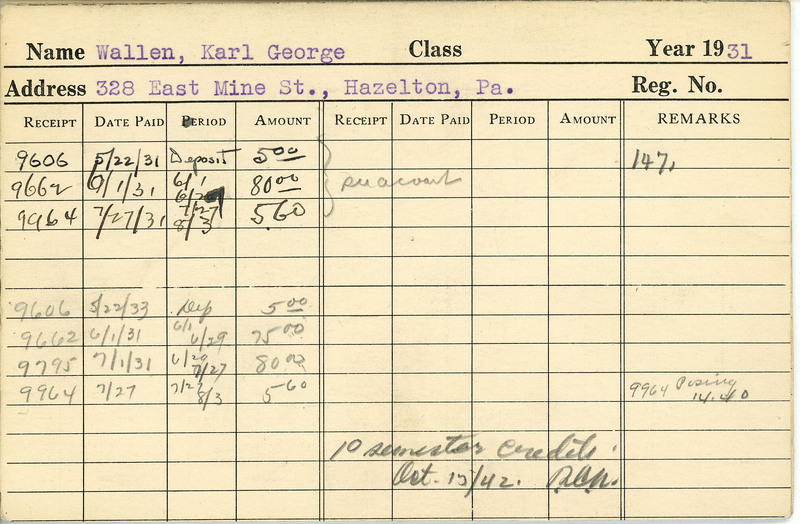 Name Wallen, Karl George Class Year 1931
Address 328 East Mine St., Hazelton, Pa. Reg. No.
RECEIPT DATE PAID PERIOD AMOUNT RECEIPT DATE PAID PERIOD AMOUNT REMARKS
9606 5/22/31 Deposit 5 00 147,
9662 6/1/31 6/1 80 00
9964 7/27/31 7/27 8/3 5 60
9606 5/22/33 Dep 5 00
9662 6/1/31 6/1 6/29 75 00
9795 7/1/31 6/29 7/27 80 00
9964 7/27 7/27 8/3 5 60 9964 14.40
10 semester credits.
Oct. 15/42.